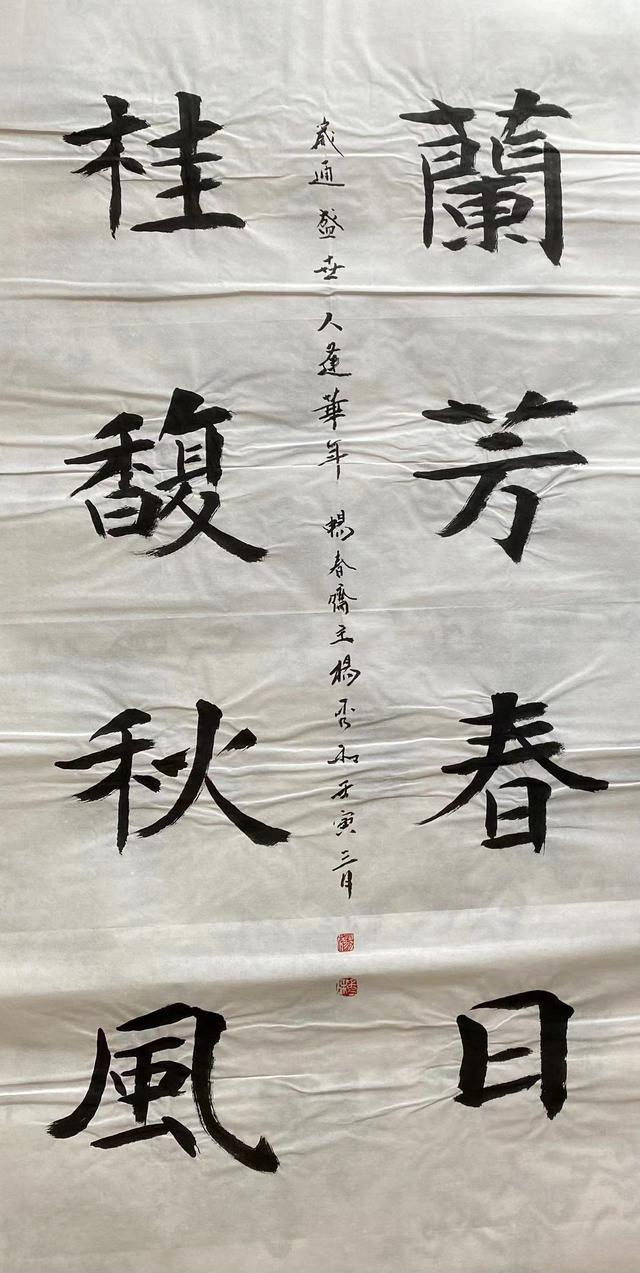 蘭芳春日
歲通盛世人華年暢春齋主楊和壬寅三月
桂馥秋風